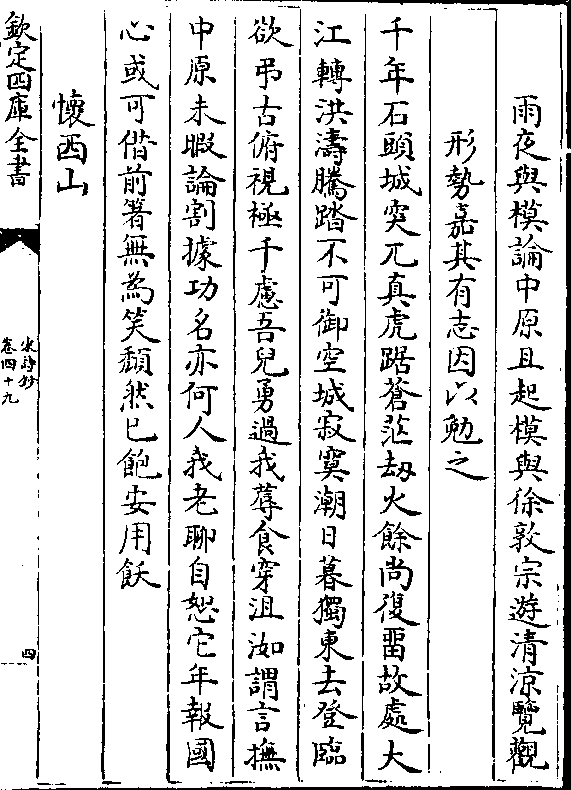 雨夜與模論中原且起模與徐敦宗遊清涼覽觀
形勢嘉其有志因以勉之
千年石頭城突兀真虎踞蒼茫劫火餘尚復留故處大
江轉洪濤騰踏不可御空城寂寞潮日暮獨東去登臨
欲弔古俯視極千慮吾兒勇過我蓐食穿沮洳謂言撫
中原未暇論割據功名亦何人我老聊自恕它年報國
心或可借前箸無為笑頹然已飽安用飫
懷西山
欽定四庫全書
宋詩鈔
卷四十九
四